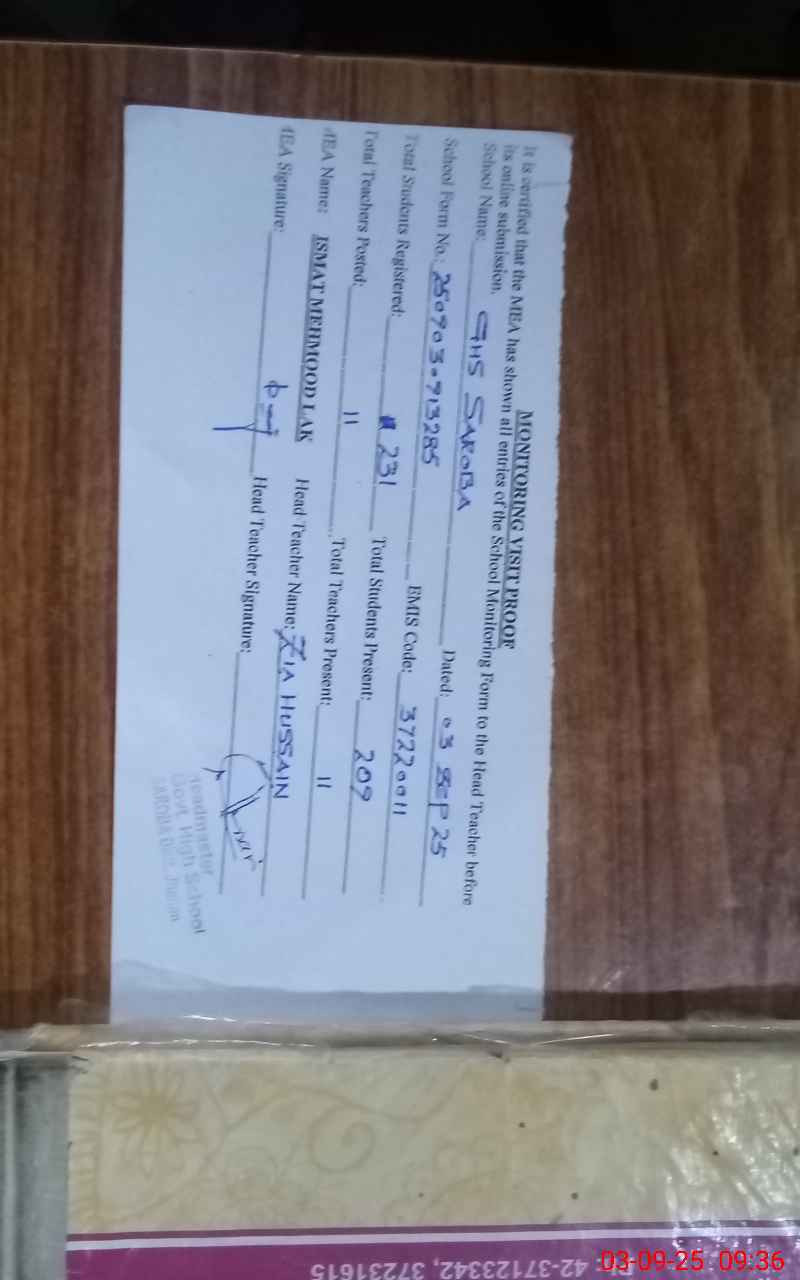 MONITORING VISIT PROOF
It is certified that the MEA has shown all entries of the School Monitoring Form to the Head Teacher before
its online submission.
School Name: GHS SAROBA Dated: 03 SEP 25
School Form No.: 2509030713285 EMIS Code: 37220011
Total Students Registered: 231 Total Students Present: 209
Total Teachers Posted: 11 Total Teachers Present: 11
MEA Name: ISMAT MEHMOOD LAK Head Teacher Name: ZIA HUSSAIN
MEA Signature: Head Teacher Signature:
Headmaster
Govt. High School
SAROBA
42-37123342, 37231615
03-09-25 09:36